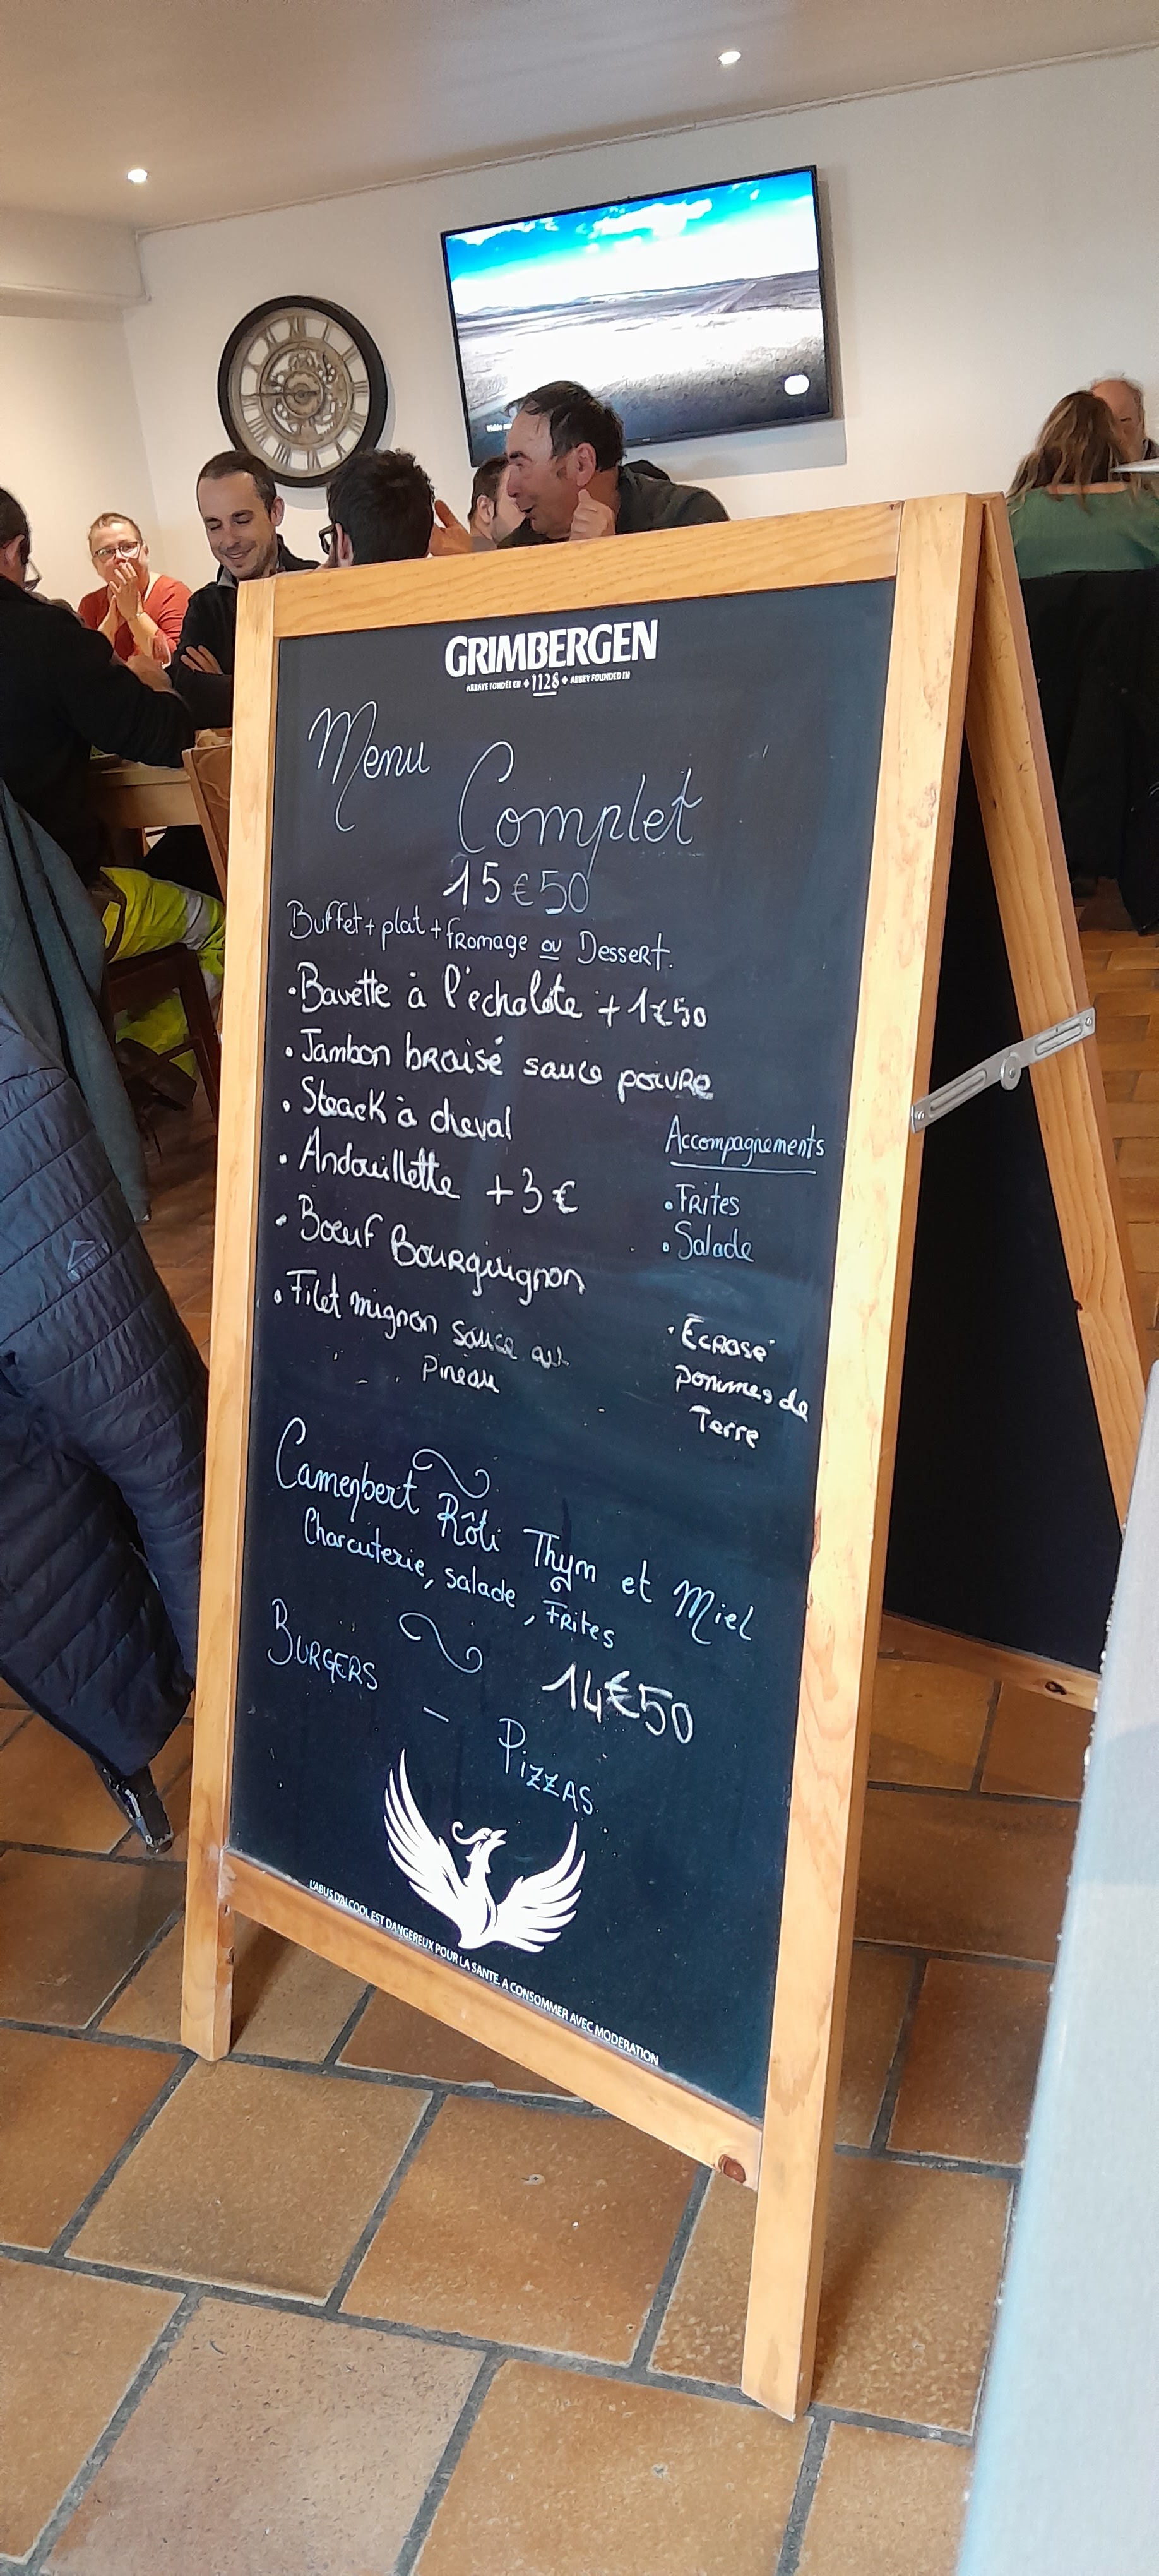 GRIMBERGEN
ABBAYE FONDÉE EN 1128 ABBEY FOUNDED IN
Menu
Complet
15€50
Buffet + plat + fromage ou Dessert.
• Bavette à l'échalote + 1€50
• Jambon braisé sauce poivre
• Steack à cheval
• Andouillette +3€
• Bœuf Bourguignon
• Filet mignon sauce au
Pineau
Accompagnements
• Frites
• Salade
• Ecrasé
pommes de
Terre
Camembert Rôti Thym et Miel
Charcuterie, salade, Frites
14€50
BURGERS - PIZZAS
L'ABUS D'ALCOOL EST DANGEREUX POUR LA SANTE. A CONSOMMER AVEC MODERATION